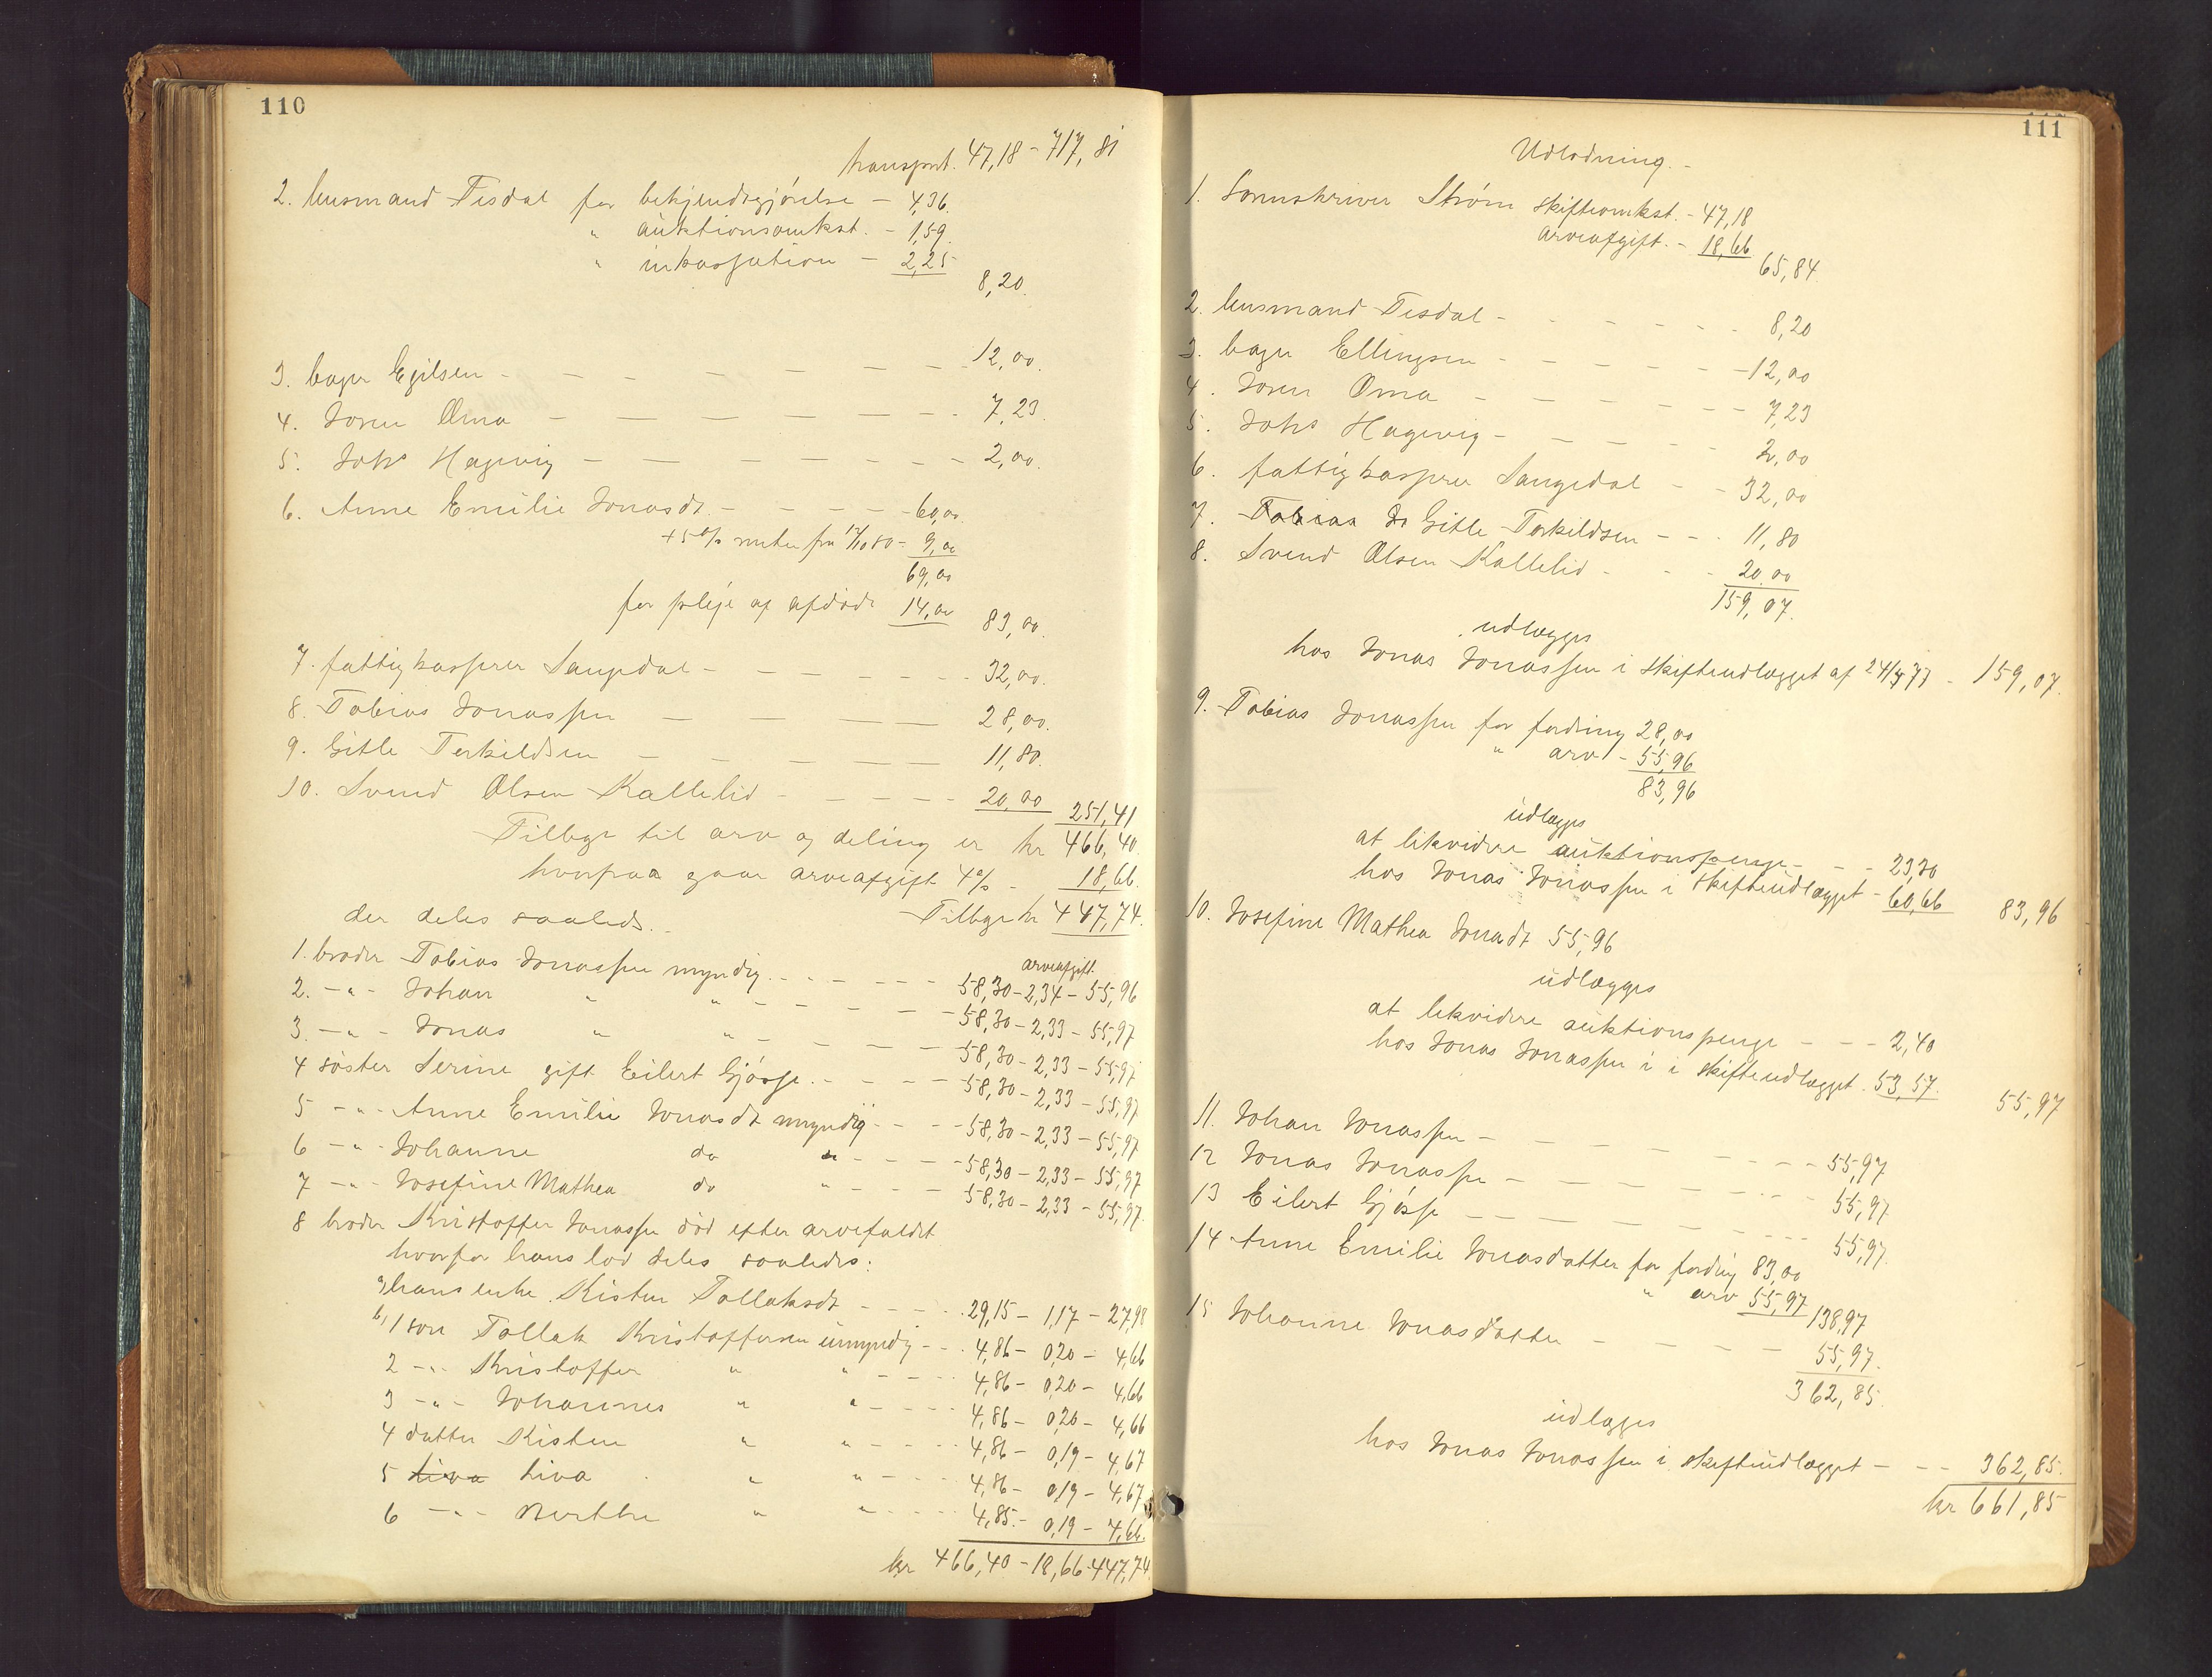 110
transport. 47,18 - 717,81
2. husmand Tisdal for bekjendtgjörelse - 4,36.
" auktionsomkst. - 1,59.
" inkassation - 2,25
8,20.
3. bager Egilsen - - - - - - - - 12,00.
4. Soren Oma - - - - - - - 7,23.
5. Johs Hagevig - - - - - - - 2,00.
6. Anne Emilie Jonasdt. - - - - - 60,00
+ 5% renter fra 12/10 80 - 9,00
69,00
for pleje af afdöde 14,00 83,00.
7. fattigkasserer Sangedal - - - - - - 32,00.
8. Tobias Jonassen - - - - 28,00.
9. Gitle Terkildsen - - - - - 11,80.
10. Svend Olsen Kallelid - - - - - 20,00 251,41
Tilbage til arv og deling er kr 466,40.
hvorpaa gaar arveafgift 4% - 18,66.
der deles saaleds. - Tilbage kr 447,74.
arveafgift.
1. broder Tobias Jonassen myndig. - - - - - - 58,30 - 2,34 - 55,96
2. - " - Johan " " - - - - - 58,30 - 2,33 - 55,97
3 - " - Jonas " " - - - - - 58,30 - 2,33 - 55,97
4 söster Serine gift Eilert Gjösse. - - - - 58,30 - 2,33 - 55,97
5 - " - Anne Emilie Jonasdt myndig - - - 58,30 - 2,33 - 55,97
6 - " - Johanne do " - - - - 58,30 - 2,33 - 55,97
7 - " - Josefine Mathea do " - - - 58,30 - 2,33 - 55,97
8 broder Kristoffer Jonassen död efter arvefaldet
hvorfor hans lod deles saaledes:
a, hans enke Kisten Tollaksdt - - - - 29,15 - 1,17 - 27,98
b, 1 sön Tollak Kristoffersen umyndig - - - 4,86 - 0,20 - 4,66
2 - " - Kristoffer " " - - - - 4,86 - 0,20 - 4,66
3 - " - Johannes " " - - - - 4,86 - 0,20 - 4,66
4 datter Kisten " " - - - - 4,86 - 0,19 - 4,67
5 Liva Liva " " - - - 4,86 - 0,19 - 4,67
6 - " - Berthe " " - - - - 4,85. - 0,19 - 4,66.
kr 466,40 - 18,66 - 447,74
111
Udlodning. -
1. Sorenskriver Ström skifteomkst. - 47,18
arveafgift. - 18,66
65,84
2. husmand Tisdal - - - - - - - 8,20
3. bager Ellingsen - - - - - - 12,00
4. Soren Oma - - - - - - - 7,23
5. Johs Hagevig - - - - - - 2,00
6. fattigkasserer Sangedal - - 32,00
7. Tobias Js Gitle Terkildsen - - - 11,80
8. Svend Olsen Kallelid - - - 20,00
159,07.
udlægges
hos Jonas Jonassen i skifteudlægget af 24/3 77 - 159,07.
9. Tobias Jonassen for fordring 28,00
" arv - 55,96
83,96
udlægges
at likvidere auktionspenge - - - 23,30
hos Jonas Jonassen i skifteudlægget - 60,66 83,96
10. Josefine Mathea Jonadt 55,96
udlægges
at likvidere auktionspenge - - - 2,40
hos Jonas Jonassen i i skifteudlægget. 53,57. 55,97
11. Johan Jonassen - - - - - - - - 55,97
12 Jonas Jonassen - - - - - - - - 55,97
13 Eilert Gjösse - - - - - - - - 55,97.
14 Anne Emilie Jonasdatter for fordring 83,00
" arv 55,97 138,97
15 Johanne Jonasdatter - - - - - 55,97.
362,85.
udlægges
hos Jonas Jonassen i skifteudlægget - - - 362,85.
kr 661,85